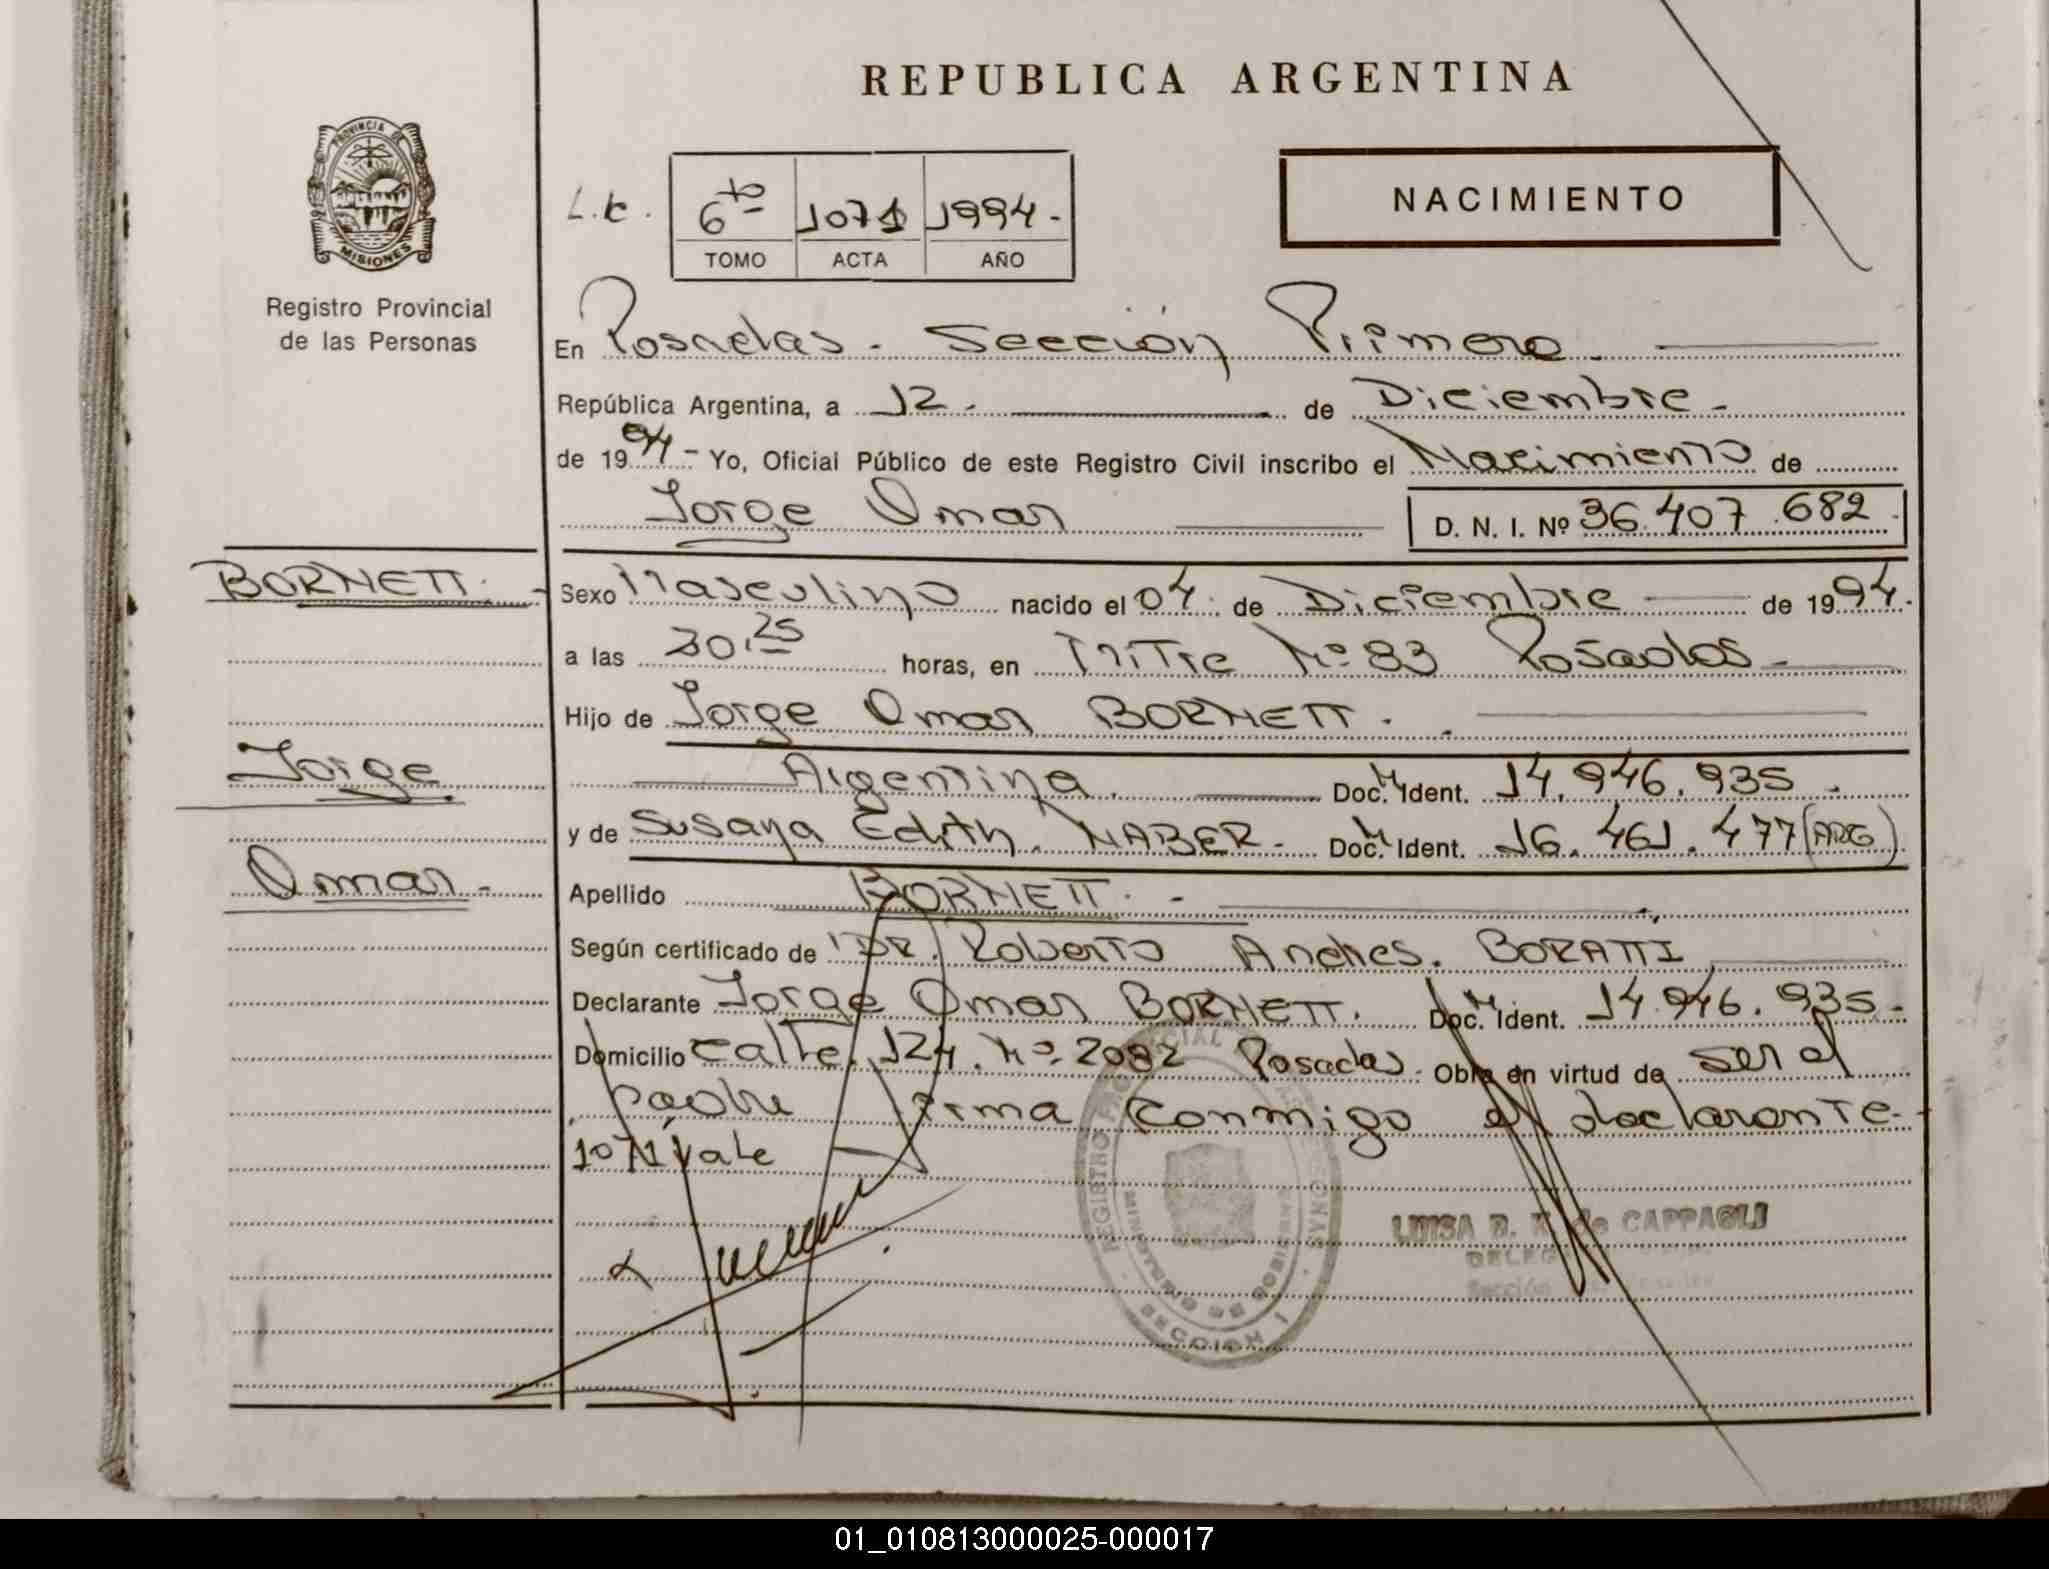 REPUBLICA ARGENTINA
PROVINCIA DE
MISIONES
Registro Provincial
de las Personas
L.c. 6to 1071 1994.-
TOMO ACTA AÑO
NACIMIENTO
En Posadas - Sección Primera.
República Argentina, a 12. de Diciembre -
de 1994 - Yo, Oficial Público de este Registro Civil inscribo el Nacimiento de
Jorge Omar D. N. I. Nº 36.407.682.
BORNETT. - Sexo Masculino nacido el 04. de Diciembre de 1994.
a las 20.25 horas, en Mitre Nº 83 Posadas -
Hijo de Jorge Omar BORNETT.
Jorge Argentina. Doc. M Ident. 14.946.935 -
y de Susana Edith. NABER - Doc. M Ident. 16.461.477 (ARG)
Omar - Apellido BORNETT. -
Según certificado de DR. Roberto Andres. BORATTI
Declarante Jorge Omar BORNETT. Doc. M Ident. 14.946.935 -
Domicilio Calle. 124. Nº 2082 Posadas. Obra en virtud de ser el
padre firma conmigo el declarante -
1071 Vale
REGISTRO
MINISTERIO DE GOBIERNO
SECCION 1
LUISA B. de CAPPAGLI
Sección
01_010813000025-000017